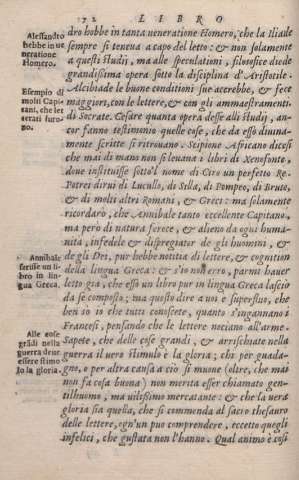 72 LIBRO
Alessandro
hebbe in ue
neratione
Homero.
Esempio di
molti Capi
tani, che let
terati furo-
no.
Annibale
scrisse un li
bro in lin-
gua Greca.
Alle cose
grādi nella
guerra deue
essere stimo
lo la gloria.
dro hobbe in tanta ueneratione Homero, che la Iliade
sempre si teneua a capo del letto: & non solamente
a questi studij, ma alle speculationi, filosofice diede
grandissima opera sotto la disciplina d'Aristotile.
Alcibiade le buone conditioni sue accrebbe, & fece
maggiori, con le lettere, & con gli ammaestramenti.
di Socrate. Cesare quanta opera desse alli studij, an-
cor fanno testimonio quelle cose, che da esso diuina-
mente scritte si ritrouano. Scipione Africano dicesi
che mai di mano non si leuaua i libri di Xenofonte,
doue instituisse sotto'l nome di Ciro un perfetto Re.
Potrei dirui di Lucullo, di Silla, di Pompeo, di Bruto,
& di molti altri Romani, & Greci: ma solamente
ricordarò, che Annibale tanto eccellente Capitano,
ma però di natura feroce, & alieno da ogni huma-
nità, infedele & dispregiator de gli huomini, &
de gli Dei, pur hebbe notitia di lettere, & cognition
della lingua Greca: & s'io non erro, parmi hauer
letto già, che esso un libro pur in lingua Greca lasciò
da se composto; ma questo dire a uoi è superfluo, che
ben sò io che tutti conoscete, quanto s'ingannano i
Francesi, pensando che le lettere nociano all'arme.
Sapete, che delle cose grandi, & arrischiate nella
guerra il uero stimulo è la gloria; chi per guada-
gno, o per altra causa a ciò si muoue (oltre, che mai
non fa cosa buona) non merita esser chiamato gen-
tilhuomo, ma uilissimo mercatante: & che la uera
gloria sia quella, che si commenda al sacro thesauro
delle lettere, ogn'un puo comprendere, eccetto quegli
infelici, che gustata non l'hanno. Qual animo è così